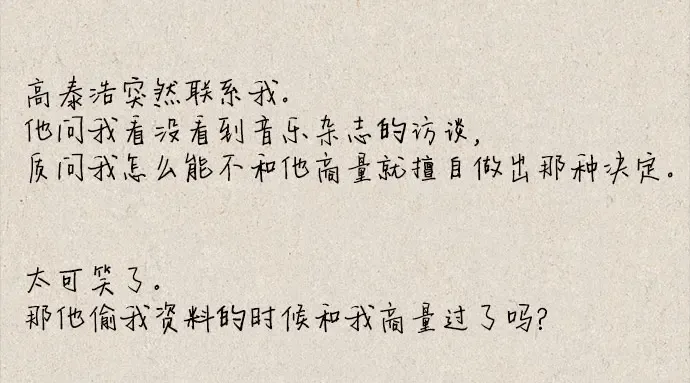 高泰浩突然联系我。
他问我看没看到音乐杂志的访谈，
质问我怎么能不和他商量就擅自做出那种决定。
太可笑了。
那他偷我资料的时候和我商量过了吗？